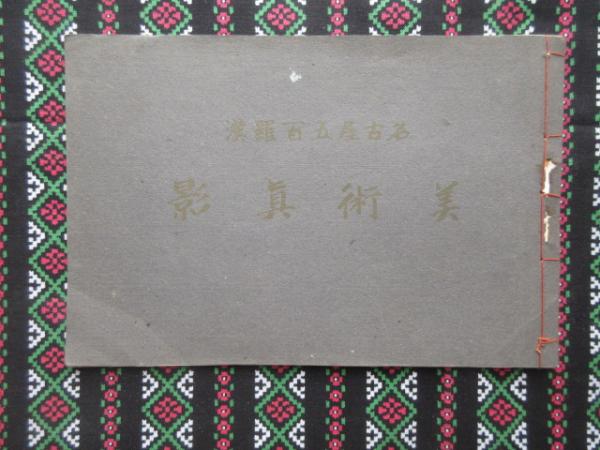 名古屋五百羅漢
美術眞影